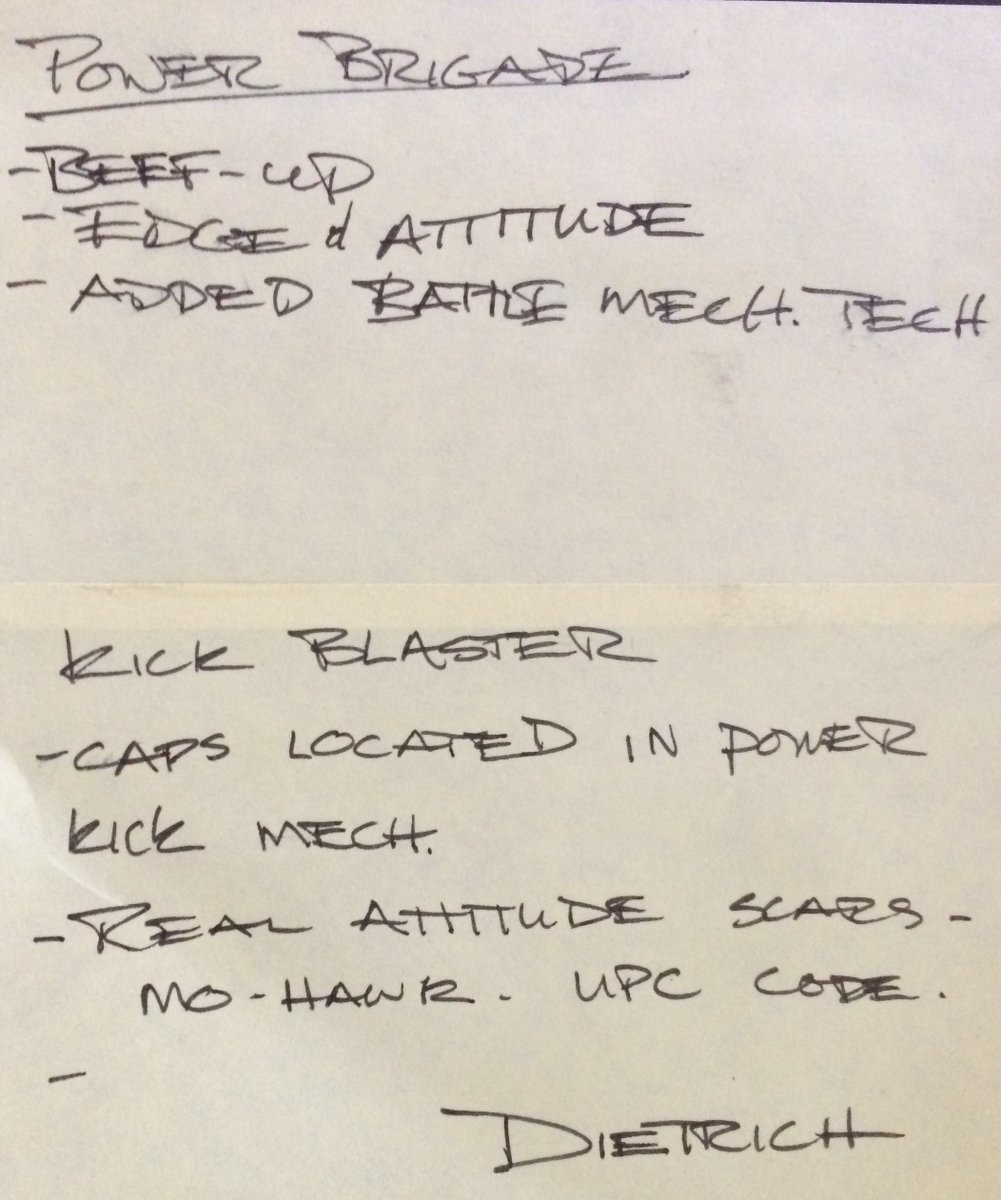 POWER BRIGADE
- BEEF-UP
- EDGE & ATTITUDE
- ADDED BATTLE MECH. TECH
KICK BLASTER
- CAPS LOCATED IN POWER
KICK MECH.
- REAL ATTITUDE SCARS -
MO-HAWK. UPC CODE.
-
DIETRICH